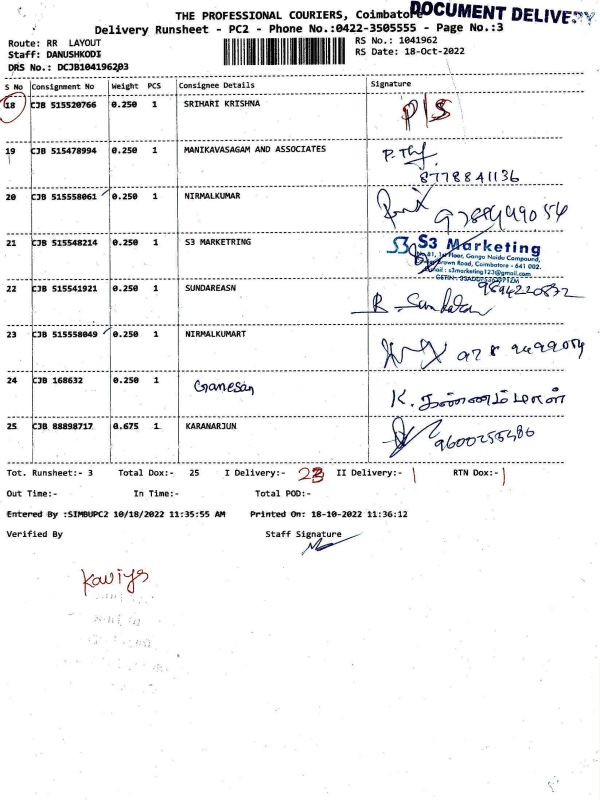 THE PROFESSIONAL COURIERS, Coimbatore
DOCUMENT DELIVERY
Delivery Runsheet - PC2 - Phone No.:0422-3505555 - Page No.:3
Route: RR LAYOUT
RS No.: 1041962
Staff: DANUSHKODI
RS Date: 18-Oct-2022
DRS No.: DCJB104196203
S No Consignment No Weight PCS Consignee Details Signature
18 CJB 515520766 0.250 1 SRIHARI KRISHNA P/S
19 CJB 515478994 0.250 1 MANIKAVASAGAM AND ASSOCIATES
8778841136
20 CJB 515558061 0.250 1 NIRMALKUMAR
9789499054
21 CJB 515548214 0.250 1 S3 MARKETRING
S3 S3 Marketing
No.81, 1st Floor, Ganga Naidu Compound,
Brown Road, Coimbatore - 641 002.
Email : s3marketing123@gmail.com
22 CJB 515541921 0.250 1 SUNDAREASN
9894220872
23 CJB 515558049 0.250 1 NIRMALKUMART
978 9499054
24 CJB 168632 0.250 1 Ganesan
K.
25 CJB 88898717 0.675 1 KARANARJUN
9600255486
Tot. Runsheet:- 3 Total Dox:- 25 I Delivery:- 23 II Delivery:- 1 RTN Dox:- 1
Out Time:- In Time:- Total POD:-
Entered By :SIMBUPC2 10/18/2022 11:35:55 AM Printed On: 18-10-2022 11:36:12
Verified By Staff Signature
Kaviya